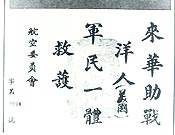 來華助戰
洋人(美國)
軍民一體
救護
航空委員會